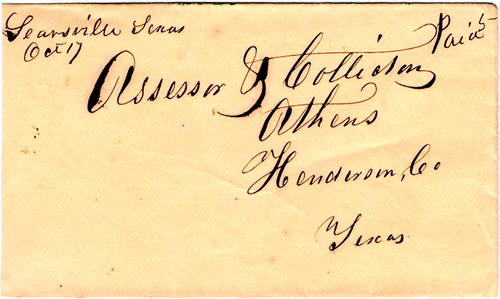 Searsville Texas
Oct 17
Paid 5
Assessor & Collector
Athens
Henderson, Co
Texas